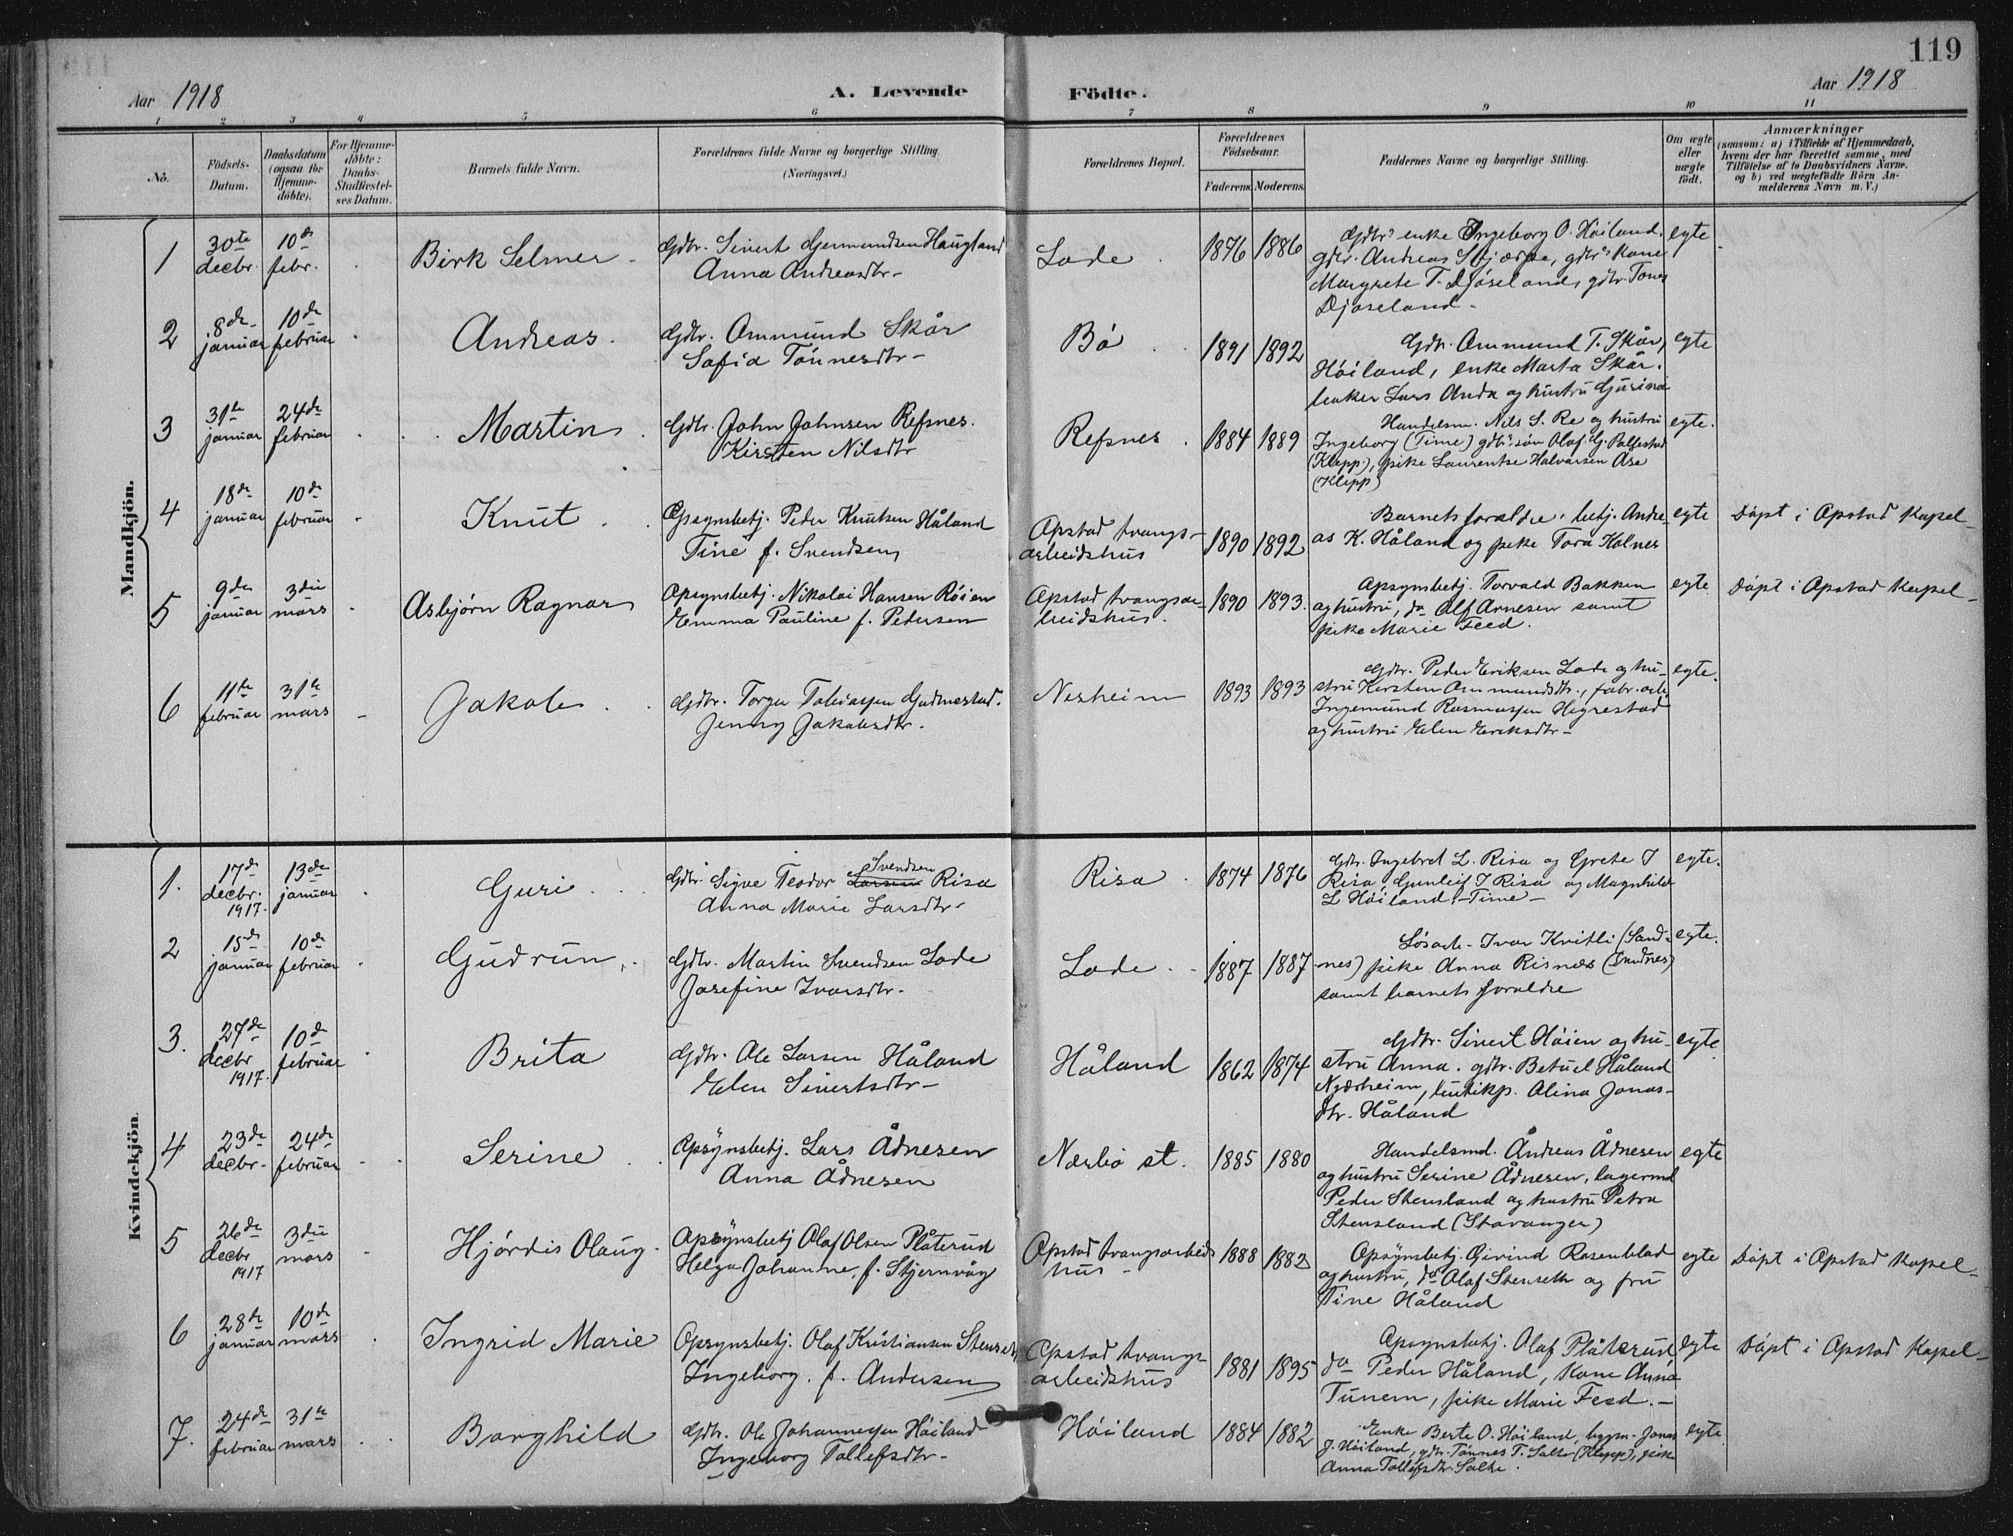 119
Aar 1918
A. Levende Födte.
Aar 1918
1 2 3 4 5 6 7 8 9 10 11
No.
Födsels-Datum.
Daabsdatum (ogsaa for Hjemme-döbte).
For Hjemme-döbte: Daabs-Stadfæstel-ses Datum.
Barnets fulde Navn.
Forældrenes fulde Navne og borgerlige Stilling. (Næringsvei.)
Forældrenes Bopæl.
Forældrenes Födselsaar.
Faderens. Moderens.
Faddernes Navne og borgerlige Stilling.
Om ægte eller uægte födt.
Anmærkninger (saasom: a) i Tilfælde af Hjemmedaab, hvem der har forrettet samme, med Tilföielse af to Daabsvidners Navne. og b) ved uægtefödte Börn An-melderens Navn m. V.)
Mandkjön.
1 30te decbr. 10de febr. Birk Selmer Gdbr. Sivert Gjermundsen Haugland Anna Andreasdtr. Lode 1876 1886 Gdbrs enke Ingeborg O. Høiland, gdbr. Andreas, gdbrs kone Margrete T. Djøseland, gdbr. Tønes Djøseland egte
2 8de januar 10de februar Andreas Gdbr. Ommund Skår Sofia Tønnesdtr Bø 1891 1892 Gdbr. Ommund T. Skår, Høiland, enke Marta Skår. baker Lars Anda og hustru Gurina egte
3 31te januar 24de februar Martin Gdbr. John Johnsen Refsnes. Kirsten Nilsdtr Refsnes 1884 1889 Handelsm. Nils S. Re og hustru Ingeborg (Time) gdbrs søn Olaf G. (Klepp), pike Laurentse Halvorsen Ase (Klepp) egte.
4 18de januar 10de februar Knut Opsynsbetj. Peder Knutsen Håland Tine f. Svendsen Opstad tvangs-arbeidshus 1890 1892 Barnets forældre, betj. Andre-as K. Håland og pike Tora Kalnes egte Døpt i Opstad Kapel
5 9de januar 3die mars Asbjørn Ragnar Opsynsbetj. Nikolai Hansen Røsen Emma Pauline f. Pedersen Opstad tvangsar-beidshus. 1890 1893. Opsynsbetj. Torvald Bakken og hustru, do Olf Arnesen samt pike Marie Feed. egte Døpt i Opstad Kapel
6 11te februar 31te mars Jakob Gdbr. Torger Tobiassen Gudmestad. Jenny Jakobsdtr. Nesheim 1893 1893 Gdbr. Peder Eriksen Lode og hu-stru Kirsten Ommundsdtr., fabr.arb. Ingemund Rasmussen Hegrestad og hustru Elen Eriksdtr egte.
Kvindekjön.
1. 17de decbr. 1917. 13de januar Guri Gdbr. Sigve Teodor Svendsen Larsen Risa Anna Marie Larsdtr Risa 1874 1876 Gdbr. Ingebret L. Risa og Grete I Risa, Gunleif I Risa og Magnhild L Høiland, Time egte.
2 15de januar 10de februar Gudrun Gdbr. Martin Svendsen Lode Josefine Ivarsdtr. Lode 1887 1887 Løsarb. Ivar Kvitli (Sand-nes) pike Anna Risnes (Sandnes) samt barnets forældre egte.
3. 27de decbr 1917. 10de februar Brita Gdbr. Ole Larsen Håland Elen Sivertsdtr Håland 1862 1874 Gdbr. Sivert Høien og hu-stru Anna. gdbr. Betuel Håland Nærheim, butikkp. Alina Jonas-dtr. Håland egte
4 23de decbr. 24de februar Serine Opsynsbetj. Lars Ådnesen Anna Ådnesen Nærbø st. 1885 1880 Handelsmd. Andreas Ådnesen og hustru Serine Ådnesen, lagermd Peder Stensland og hustru Petra Stensland (Stavanger) egte
5 26de decbr 1917 3die mars Hjørdis Olaug Opsynsbetj Olaf Olsen Plåterud Helga Johanne f. Stjernvåg Opstad tvangsarbeids hus 1888 1882 Opsynsbetj. Eivind Rosenblad og hustru, do Olaf Stenseth og fru Tine Håland egte Døpt i Opstad Kapel
6 28de januar 10de mars Ingrid Marie Opsynsbetj. Olaf Kristiansen Stenseth Ingeborg f. Andersen Opstad tvangs-arbeidshus 1881 1895 Opsynsbetj. Olaf Plåterud do Peder Håland, Kone Anna Tunem, pike Marie Feed. egte Døpt i Opstad Kapel
7. 24de februar 31te mars Borghild Gdbr. Ole Johannessen Høiland Ingeborg Tollefsdtr. Høiland 1884 1882 Enke Berte O. Høiland, Jonas J. Høiland, gdbr. Tønnes T. Salte (Klepp), pike Anna Tollefsdtr Salte. egte